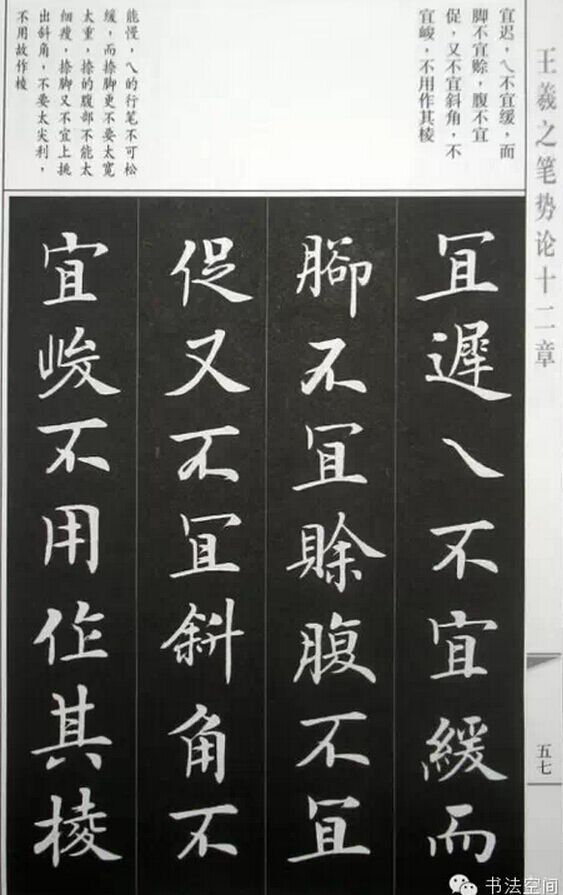 王羲之笔势论十二章
宜迟，乀不宜缓，而
脚不宜赊，腹不宜
促，又不宜斜角，不
宜峻，不用作其棱
能慢，乀的行笔不可松
缓，而捺脚更不要太宽
太重，捺的腹部不能太
细瘦，捺脚又不宜上挑
出斜角，不要太尖利，
不用故作棱
冝遲乀不宜緩而
腳不冝賒腹不冝
促又不冝斜角不
宜峻不用作其棱
五七
书法空间